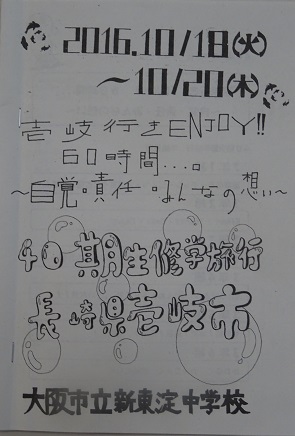 2016.10/18(火)
～10/20(木)
壱岐行きENJOY!!
60時間...。
～自覚・責任・みんなの想い～
40期生修学旅行
長崎県壱岐市
大阪市立新東淀中学校